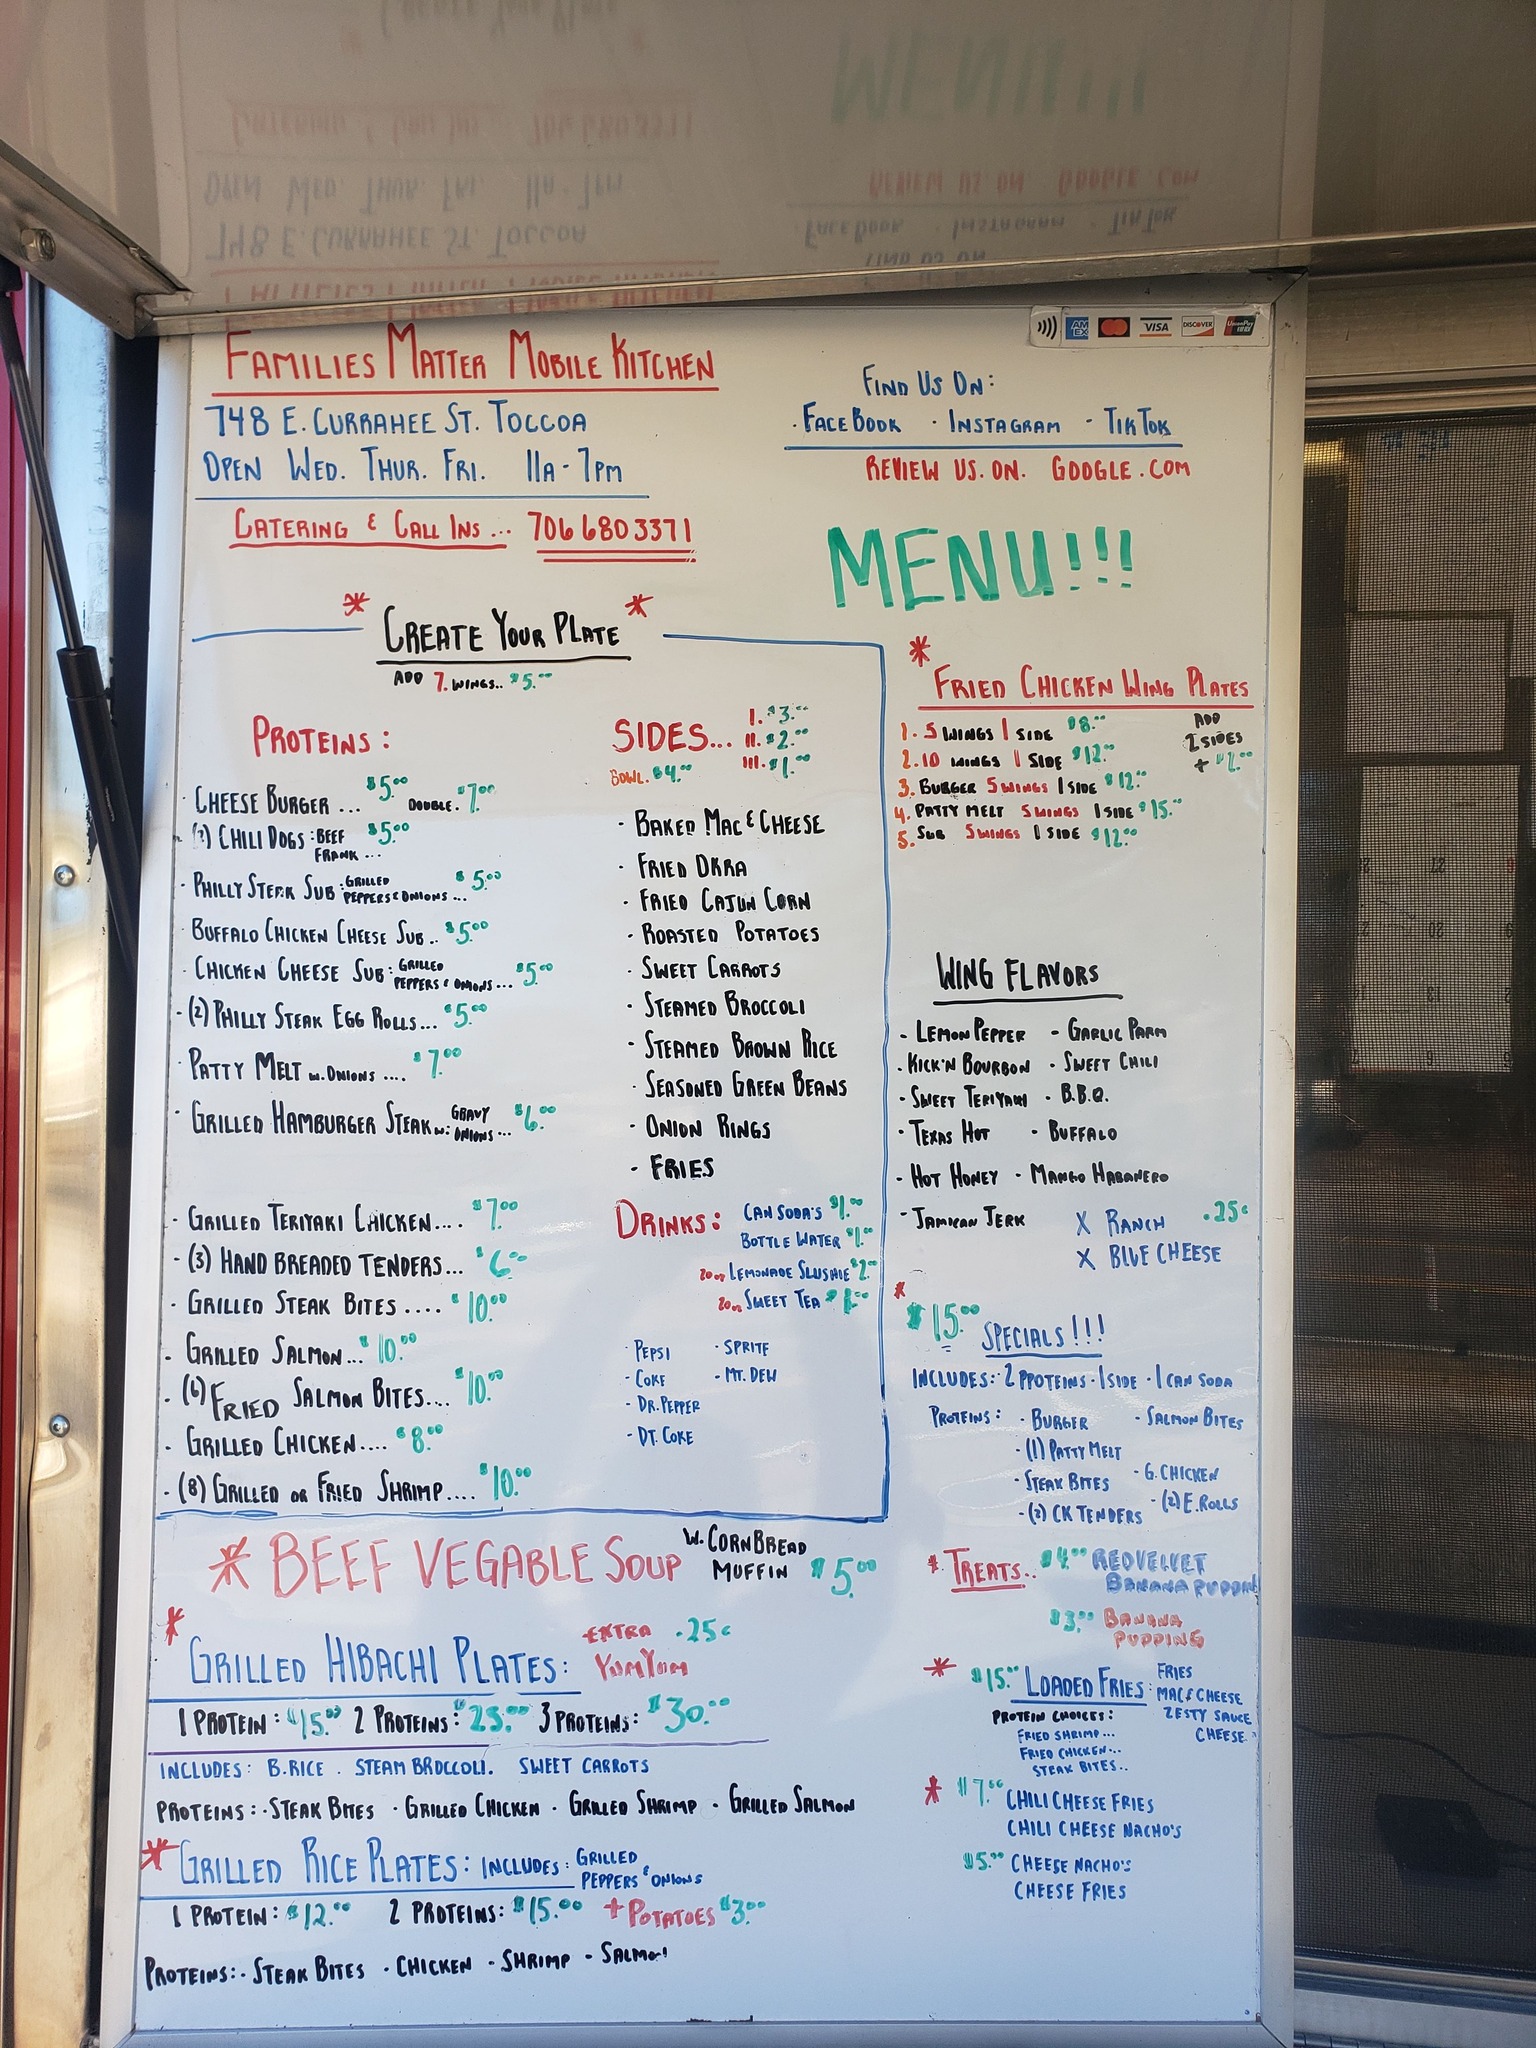 FAMILIES MATTER MOBILE KITCHEN
748 E. CURRAHEE ST. TOCCOA
OPEN WED. THUR. FRI. 11A-7PM
CATERING & CALL INS... 706 680 3371
AM EX VISA DISCOVER UnionPay
FIND US ON:
· FACEBOOK · INSTAGRAM - TIKTOK
REVIEW US. ON. GOOGLE.COM
MENU!!!
* CREATE YOUR PLATE *
ADD 7. WINGS.. $5.00
PROTEINS:
· CHEESE BURGER ... $5.00 DOUBLE. $7.00
CHILI DOGS: BEEF FRANK ... $5.00
· PHILLY STEAK SUB: GRILLED PEPPERS & ONIONS ... $5.00
· BUFFALO CHICKEN CHEESE SUB.. $5.00
· CHICKEN CHEESE SUB: GRILLED PEPPERS & ONIONS... $5.00
· (2) PHILLY STEAK EGG ROLLS... $5.00
· PATTY MELT W. ONIONS .... $7.00
· GRILLED HAMBURGER STEAK W: GRAVY ONIONS... $6.00
· GRILLED TERIYAKI CHICKEN.... $7.00
· (3) HAND BREADED TENDERS... $6.00
· GRILLED STEAK BITES .... $10.00
· GRILLED SALMON... $10.00
· (6) FRIED SALMON BITES... $10.00
· GRILLED CHICKEN.... $8.00
· (8) GRILLED OR FRIED SHRIMP.... $10.00
SIDES... I. $3.00
II. $2.00
III. $1.00
BOWL. $4.00
· BAKED MAC & CHEESE
· FRIED OKRA
· FRIED CAJUN CORN
· ROASTED POTATOES
· SWEET CARROTS
· STEAMED BROCCOLI
· STEAMED BROWN RICE
· SEASONED GREEN BEANS
· ONION RINGS
· FRIES
DRINKS: CAN SODA'S $1.00
BOTTLE WATER $1.00
20oz LEMONADE SLUSHIE $2.00
20oz SWEET TEA
· PEPSI · SPRITE
· COKE - MT. DEW
· DR. PEPPER
· DT. COKE
* FRIED CHICKEN WING PLATES
1. 5 WINGS 1 SIDE $8.00
2. 10 WINGS 1 SIDE $12.00
3. BURGER 5 WINGS 1 SIDE $12.00
4. PATTY MELT 5 WINGS 1 SIDE $15.00
5. SUB 5 WINGS 1 SIDE $12.00
ADD
SIDES
+ $2.00
WING FLAVORS
- LEMON PEPPER - GARLIC PARM
- KICK'N BOURBON - SWEET CHILI
- SWEET TERIYAKI - B.B.Q.
- TEXAS HOT - BUFFALO
- HOT HONEY - MANGO HABANERO
- JAMICAN JERK X RANCH .25¢
X BLUE CHEESE
* $15.00 SPECIALS!!!
INCLUDES: 2 PROTEINS · 1 SIDE · 1 CAN SODA
PROTEINS: - BURGER - SALMON BITES
- (1) PATTY MELT
- STEAK BITES - G. CHICKEN
- (2) CK TENDERS - (2) E. ROLLS
* BEEF VEGABLE SOUP W. CORNBREAD MUFFIN $5.00
* GRILLED HIBACHI PLATES: EXTRA YUMYUM .25¢
1 PROTEIN: $15.00 2 PROTEINS: $25.00 3 PROTEINS: $30.00
INCLUDES: B. RICE . STEAM BROCCOLI. SWEET CARROTS
PROTEINS: · STEAK BITES · GRILLED CHICKEN · GRILLED SHRIMP · GRILLED SALMON
* GRILLED RICE PLATES: INCLUDES: GRILLED PEPPERS & ONIONS
1 PROTEIN: $12.00 2 PROTEINS: $15.00 + POTATOES $3.00
PROTEINS: · STEAK BITES · CHICKEN · SHRIMP - SALMON
* TREATS.. $4.00 REDVELVET
BANANA PUDDIN
$3.00 BANANA
PUDDING
* $15.00 LOADED FRIES: FRIES
MAC & CHEESE
ZESTY SAUCE
CHEESE
PROTEIN CHOICES:
FRIED SHRIMP...
FRIED CHICKEN...
STEAK BITES..
* $7.00 CHILI CHEESE FRIES
CHILI CHEESE NACHO'S
$5.00 CHEESE NACHO'S
CHEESE FRIES